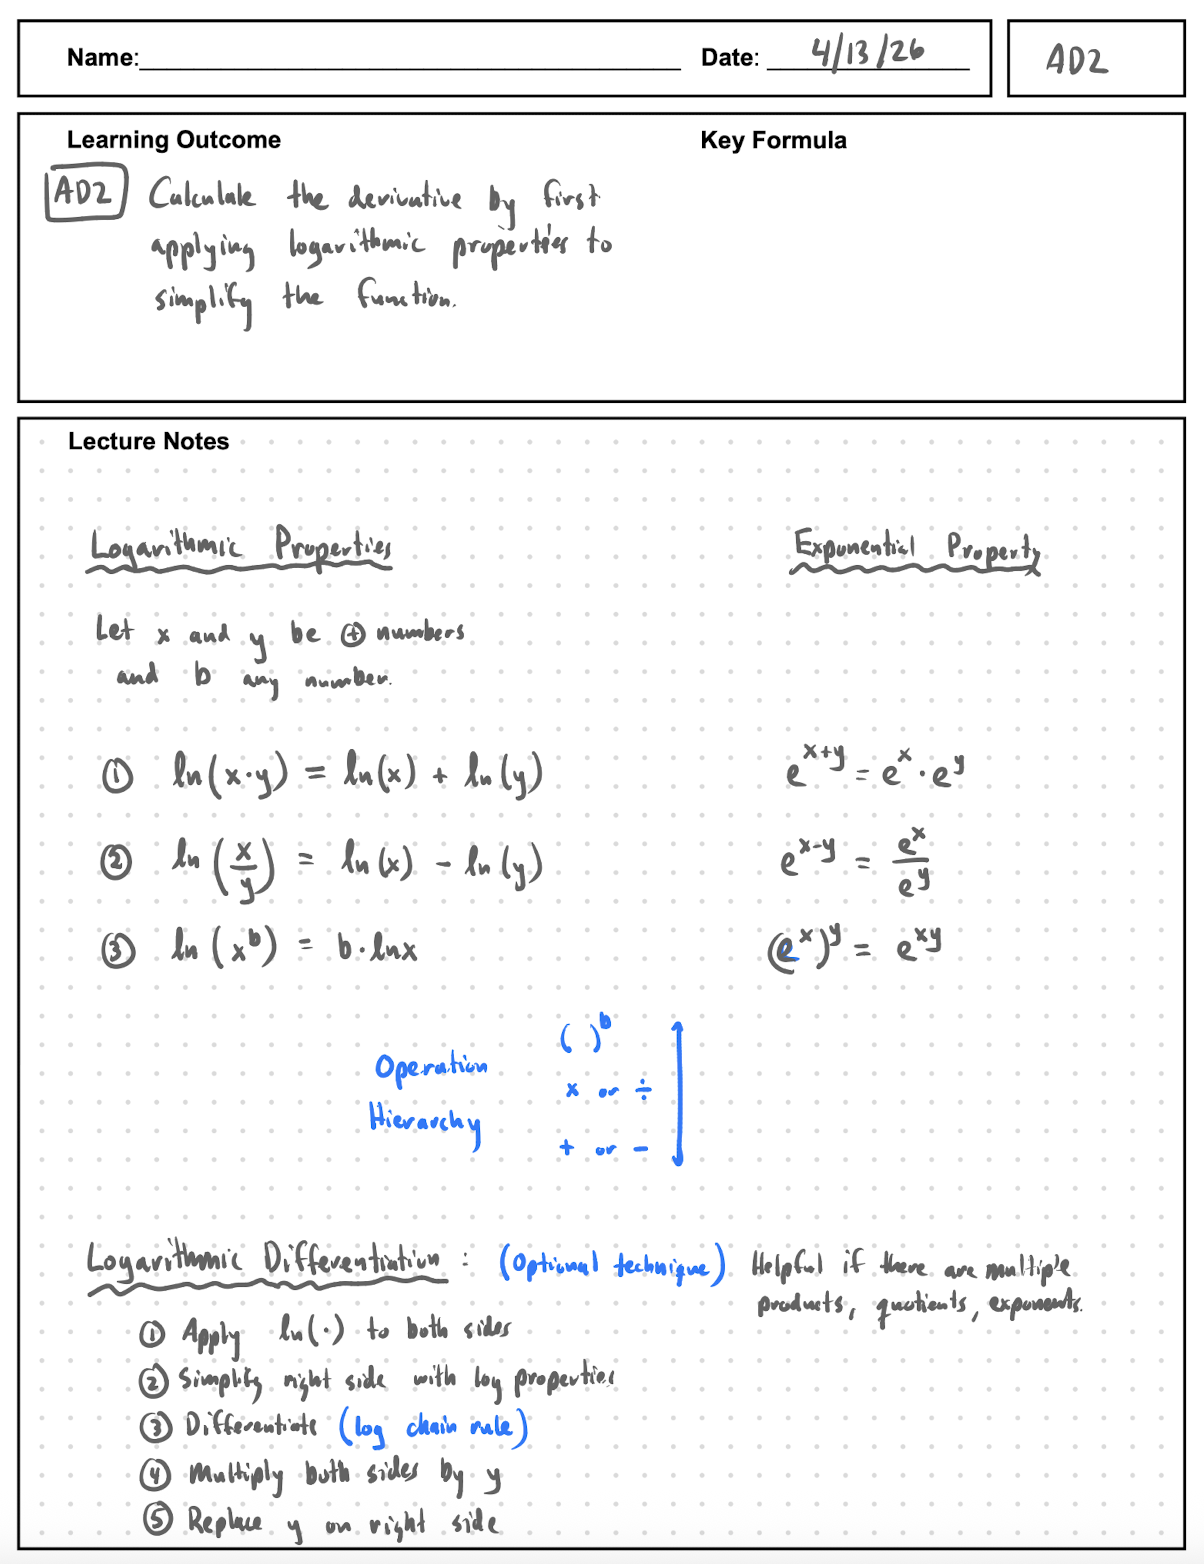 Name: Date: 4/13/26
AD2
Learning Outcome
Key Formula
AD2 Calculate the derivative by first
applying logarithmic properties to
simplify the function.
Lecture Notes
Logarithmic Properties
Exponential Property
Let x and y be ⊕ numbers
and b any number.
① ln(x·y) = ln(x) + ln(y)
e^{x+y} = e^x · e^y
② ln(x/y) = ln(x) - ln(y)
e^{x-y} = e^x/e^y
③ ln(x^b) = b·lnx
(e^x)^y = e^{xy}
Operation
Hierarchy
( )^b
x or ÷
+ or -
Logarithmic Differentiation : (Optional technique) Helpful if there are multiple
products, quotients, exponents.
① Apply ln(·) to both sides
② Simplify right side with log properties
③ Differentiate (log chain rule)
④ Multiply both sides by y
⑤ Replace y on right side